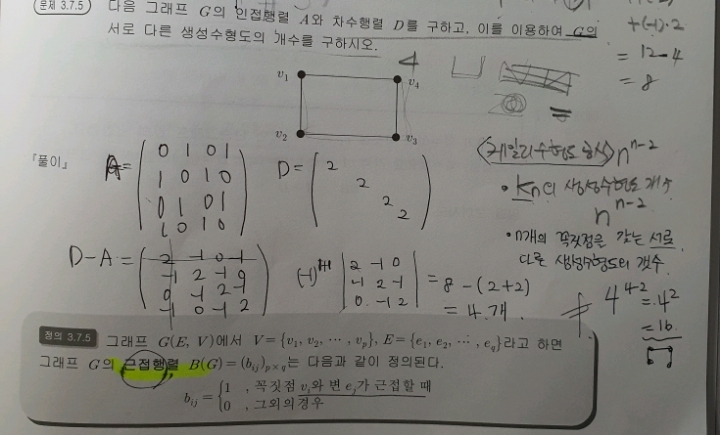 문제 3.7.5 다음 그래프 G의 인접행렬 A와 차수행렬 D를 구하고, 이를 이용하여 G의
서로 다른 생성수형도의 개수를 구하시오.
+(-1)·2
= 12-4
= 8
4
v₁ v₄
v₂ v₃
『풀이』
A = ( 0 1 0 1
1 0 1 0
0 1 0 1
1 0 1 0 )
D = ( 2
2
2
2 )
<케일리수형도 형식> n^{n-2}
• Kn의 생성수형도 개수
n^{n-2}
• n개의 꼭짓점을 갖는 서로
다른 생성수형도의 갯수
D-A = ( 2 -1 0 -1
-1 2 -1 0
0 -1 2 -1
-1 0 -1 2 )
(-1)^{1+1} | 2 -1 0
-1 2 -1
0 -1 2 | = 8 - (2+2)
= 4개.
≠ 4^{4-2} = 4²
= 16
정의 3.7.5 그래프 G(E, V)에서 V={v₁, v₂, ⋯, v_p}, E={e₁, e₂, ⋯, e_q}라고 하면
그래프 G의 근접행렬 B(G)=(b_{ij})_{p×q}는 다음과 같이 정의된다.
b_{ij} = { 1 , 꼭짓점 v_i와 변 e_j가 근접할 때
0 , 그외의 경우